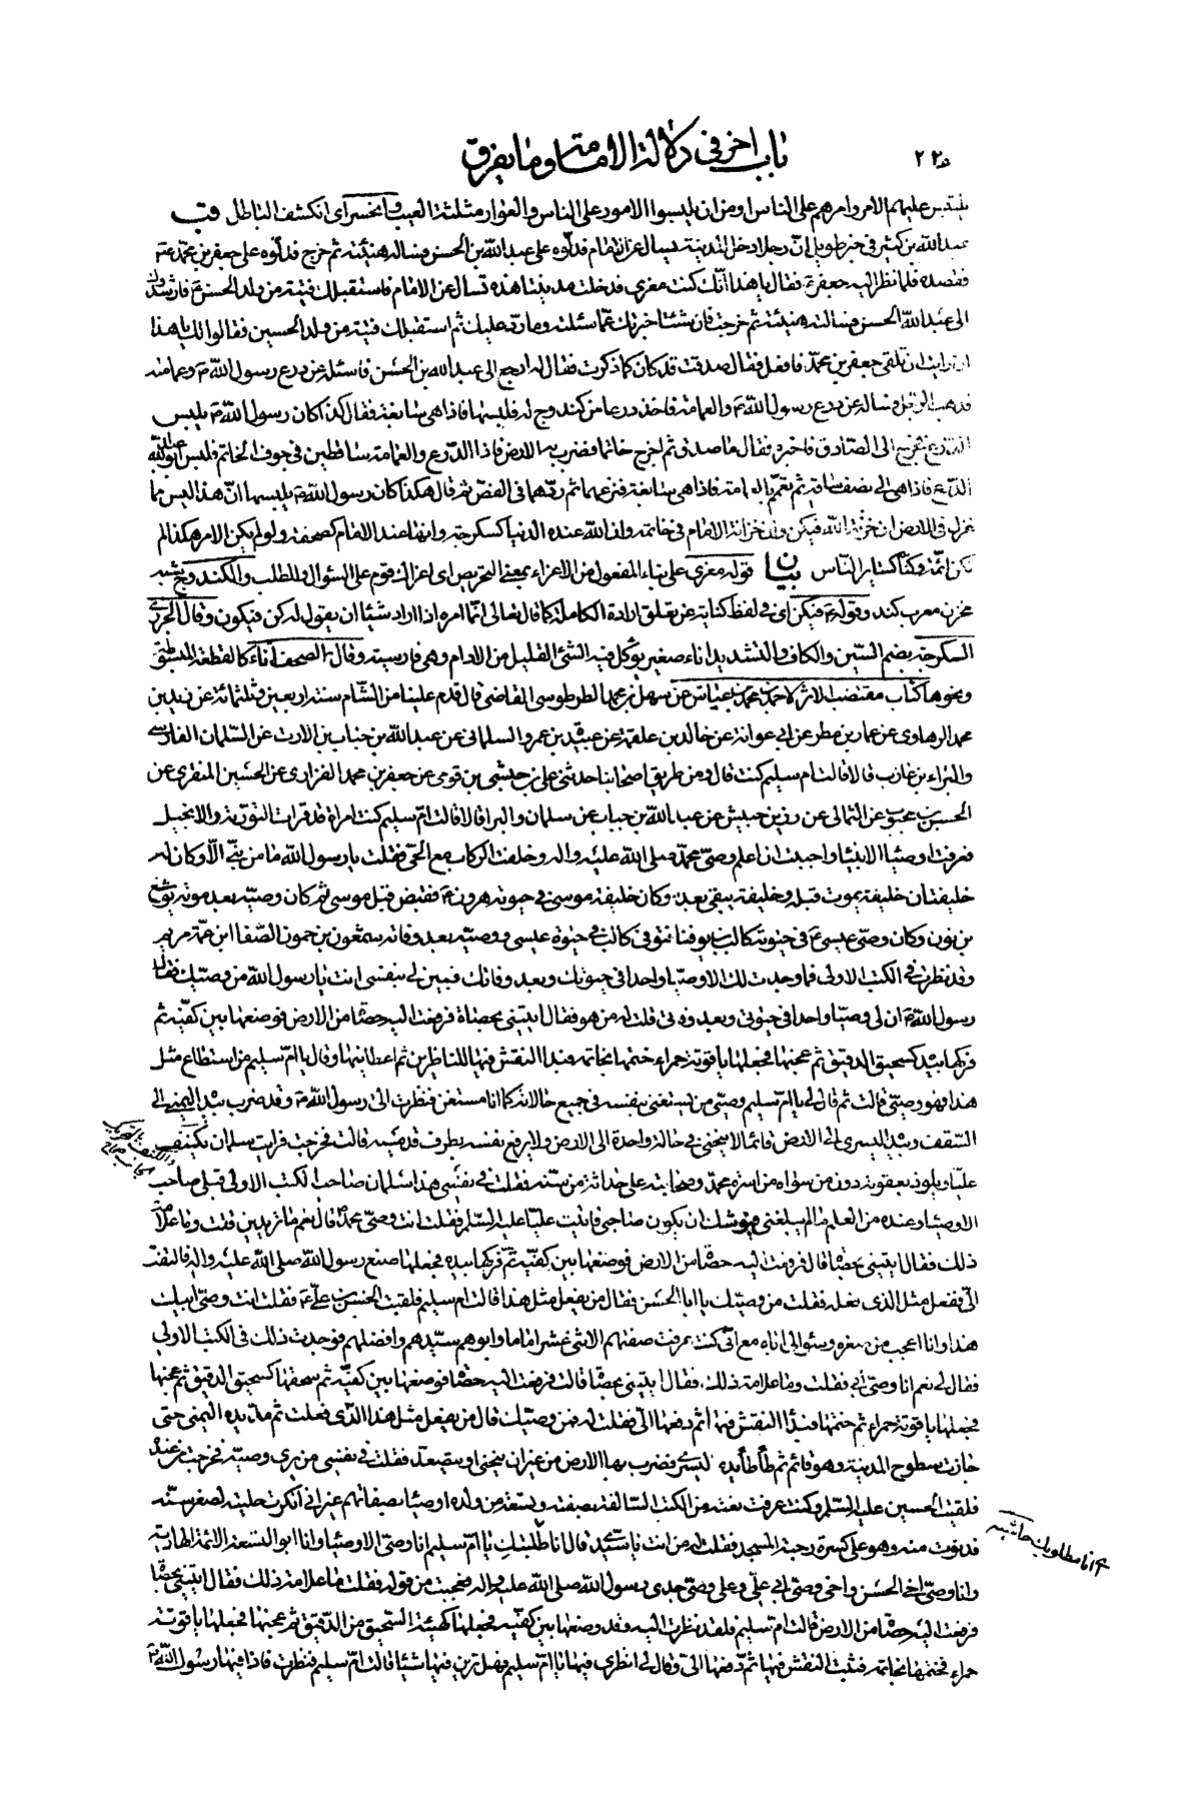 ٢٢٥
باب اخر في دلالة الامامة وما يفرق
يلتبس عليهم الامر وامرهم على الناس او من ان يلبسوا الامور على الناس والعوار مثلثة العيب وانحسر اى انكشف الباطل قب
عبدالله بن كثير في خبر طويل انّ رجلا دخل المدينة يسال عن الامام فدلّوه على عبدالله بن الحسن فساله هنيئة ثم خرج فدلّوه على جعفر بن محمّد ع
فقصده فلما نظر اليه جعفر ع فقال يا هذا انّك كنت مغرى فدخلت مدينتنا هذه تسال عن الامام فاستقبلك فتية من ولد الحسن ع فارشدوك
الى عبدالله الحسن فسالته هنيئة ثم خرجت فان شئت اخبرتك عمّا سئلته وما ردّ عليك ثم استقبلك فتية من ولد الحسين فقالوا لك يا هذا
ان رايت ان تلقى جعفر بن محمّد فافعل فقال صدقت قد كان كما ذكرت فقال له ارجع الى عبدالله بن الحسن فاسئله عن درع رسول الله ص وعمامته
فذهب الرجل وساله عن درع رسول الله ص والعمامة فاخذ درعا من كندوج له فلبسها فاذا هى سابغة فقال كذا كان رسول الله ص يلبس
الدرع فرجع الى الصّادق ع فاخبره فقال ما صدق ثم اخرج خاتما فضرب به الارض فاذا الدّرع والعمامة ساقطين في جوف الخاتم فلبس ابو عبدالله
الدّرع فاذا هى الى نصف ساقه ثم تعمّم بالعمامة فاذا هى سابغة فنزعهما ثم ردّهما في الفصّ ثم قال هكذا كان رسول الله ص يلبسها انّ هذا ليس مما
غزل في الارض ان خزانة الله في كن وان خزانة الامام في خاتمه وان الله عنده الدنيا كسكرجة وانها عند الامام كصحفة ولو لم يكن الامر هكذا لم
نكن ائمّة وكنّا كسائر النّاس بيان قوله مغرى على بناء المفعول من الاغراء بمعنى التحريص اى اغراك قوم على السؤال والطلب والكندوج شبه
مخزن معرب كندو وقوله ع في كن اى في لفظ كناية عن تعلق ارادة الكاملة كما قال تعالى انّما امره اذا اراد شيئا ان يقول له كن فيكون وقال الجزرى
السكرجة بضم السّين والكاف والتشديد اناء صغير يؤكل فيه الشئ القليل من الادام وهى فارسية وقال الصحفة اناء كالقطعة المبسوطة
ونحوها كتاب مقتضب الاثر لاحمد بن محمد بن عيّاش عن سهل بن محمد الطرطوسى القاضى قال قدم علينا من الشّام سنة اربعين وثلثمائة عن زيد بن
محمد الرهاوى عن عمار بن مطر عن ابى عوانة عن خالد بن علقمة عن عبيدة بن عمرو السلمانى عن عبدالله بن خباب بن الارت عن السّلمان الفارسى
والبراء بن عازب قالا قالت ام سليم كنت قال ومن طريق اصحابنا حدثنى على بن حبشى بن قونى عن جعفر بن محمد الفزارى عن الحسين المنقرى عن
الحسن بن محبوب عن الثمالى عن زر بن حبيش عن عبد الله بن خباب عن سلمان والبرا قالا قالت امّ سليم كنت امراة قد قرات التورية والانجيل
فعرفت اوصيا الانبيا واحببت ان اعلم وصىّ محمّد صلى الله عليه واله وخلفت الركاب مع الحى فقلت يا رسول الله ما من نبىّ الّا وكان له
خليفتان خليفة يموت قبله وخليفة يبقى بعده وكان خليفة موسى في حيوته هرون ع فقبض قبل موسى ثم كان وصيّه بعد موته يوشع
بن نون وكان وصىّ عيسى ع في حيوته كالب بن يوفنا فتوفى كالب في حيوة عيسى ووصيّه بعد وفاته شمعون بن حمون الصّفا ابن عمّة مريم
وقد نظرت في الكتب الاولى فما وجدت لك الا وصيّا واحدا في حيوتك وبعد وفاتك فبيّن لى بنفسى انت يا رسول الله من وصيّك فقال
رسول الله ص ان لى وصيّا واحدا في حيوتى وبعد وفاتى قلت له من هو فقال ايتينى بحصاة فرفعت اليه حصاة من الارض فوضعها بين كفّيه ثم
فركها بيده كسحيق الدقيق ثم عجنها فجعلها ياقوتة حمراء ختمها بخاتمه فبدا النقش فيها للناظرين ثم اعطانيها وقال يا امّ سليم من استطاع مثل
هذا فهو وصيّى قالت ثم قال لى يا امّ سليم وصيّى من يستغنى بنفسه في جميع حالاته كما انا مستغن فنظرت الى رسول الله ص وقد ضرب بيده اليمنى الى
السّقف وبيده اليسرى الى الارض قائما لا ينحنى في حالة واحدة الى الارض ولا يرفع نفسه بطرف قدميه قالت فخرجت فرايت سلمان يكنف
عليّا ويلوذ بعقوته دون من سواه من اسرة محمّد وصحابته على حداثة من سنّه فقلت في نفسى هذا سلمان صاحب الكتب الاولى قبلى صاحب
الاوصيا وعنده من العلم ما لم يبلغنى فيوشك ان يكون صاحبى فاتيت عليّا عليه السّلم فقلت انت وصىّ محمّد قال نعم ما تريدين قلت وما علامة
ذلك فقال ايتينى بحصاة قال فرفعت اليه حصاة من الارض فوضعها بين كفّيه ثم فركها بيده فجعلها صنع رسول الله صلى الله عليه واله فالتفت
الىّ ففعل مثل الذى فعله فقلت من وصيّك يا ابا الحسن فقال من يفعل مثل هذا قالت ام سليم فلقيت الحسن بن على ع فقلت انت وصىّ ابيك
هذا وانا اعجب من صغره وسؤالى اياه مع انّى كنت عرفت صفتهم الاثنى عشر اماما وابوهم سيّدهم وافضلهم فوجدت ذلك في الكتب الاولى
فقال لى نعم انا وصىّ ابى فقلت وما علامة ذلك فقال ايتينى بحصاة قالت فرفعت اليه حصاة فوضعها بين كفّيه ثم سحقها كسحيق الدقيق ثم عجنها
فجعلها ياقوتة حمراء ثم ختمها فبدا النقش فيها ثم دفعها الىّ فقلت له فمن وصيّك قال من يفعل مثل هذا الّذى فعلت ثم مدّ يده اليمنى حتى
جازت سطوح المدينة وهو قائم ثم طأطأ يده اليسرى فضرب بها الارض من غير ان ينحنى او يتصعّد فقلت في نفسى من يرى وصيّه فخرجت من عنده
فلقيت الحسين عليه السّلم وكنت عرفت نعته من الكتب السّالفة بصفته وتسعة من ولده اوصيا بصفاتهم غير انى انكرت حليته لصغر سنّه
فدنوت منه وهو على كسرة رحبة المسجد فقلت له من انت يا سيّدى قال انا طلبتك يا امّ سليم انا وصىّ الاوصيا وانا ابو التسعة الائمة الهادية
وانا وصىّ اخى الحسن واخى وصىّ ابى علىّ وعلى وصىّ جدى رسول الله صلى الله عليه واله فعجبت من قوله فقلت ما علامة ذلك فقال ايتينى بحصاة
فرفعت اليه حصاة من الارض قالت ام سليم فلقد نظرت اليه وقد وضعها بين كفّيه فجعلها كهيئة السّحيق من الدّقيق ثم عجنها فجعلها ياقوتة
حمراء فختمها بخاتمه فثبت النقش فيها ثم دفعها الىّ وقال لى انظرى فيها يا امّ سليم فهل ترين فيها شيئا قالت امّ سليم فنظرت فاذا فيها رسول الله ص